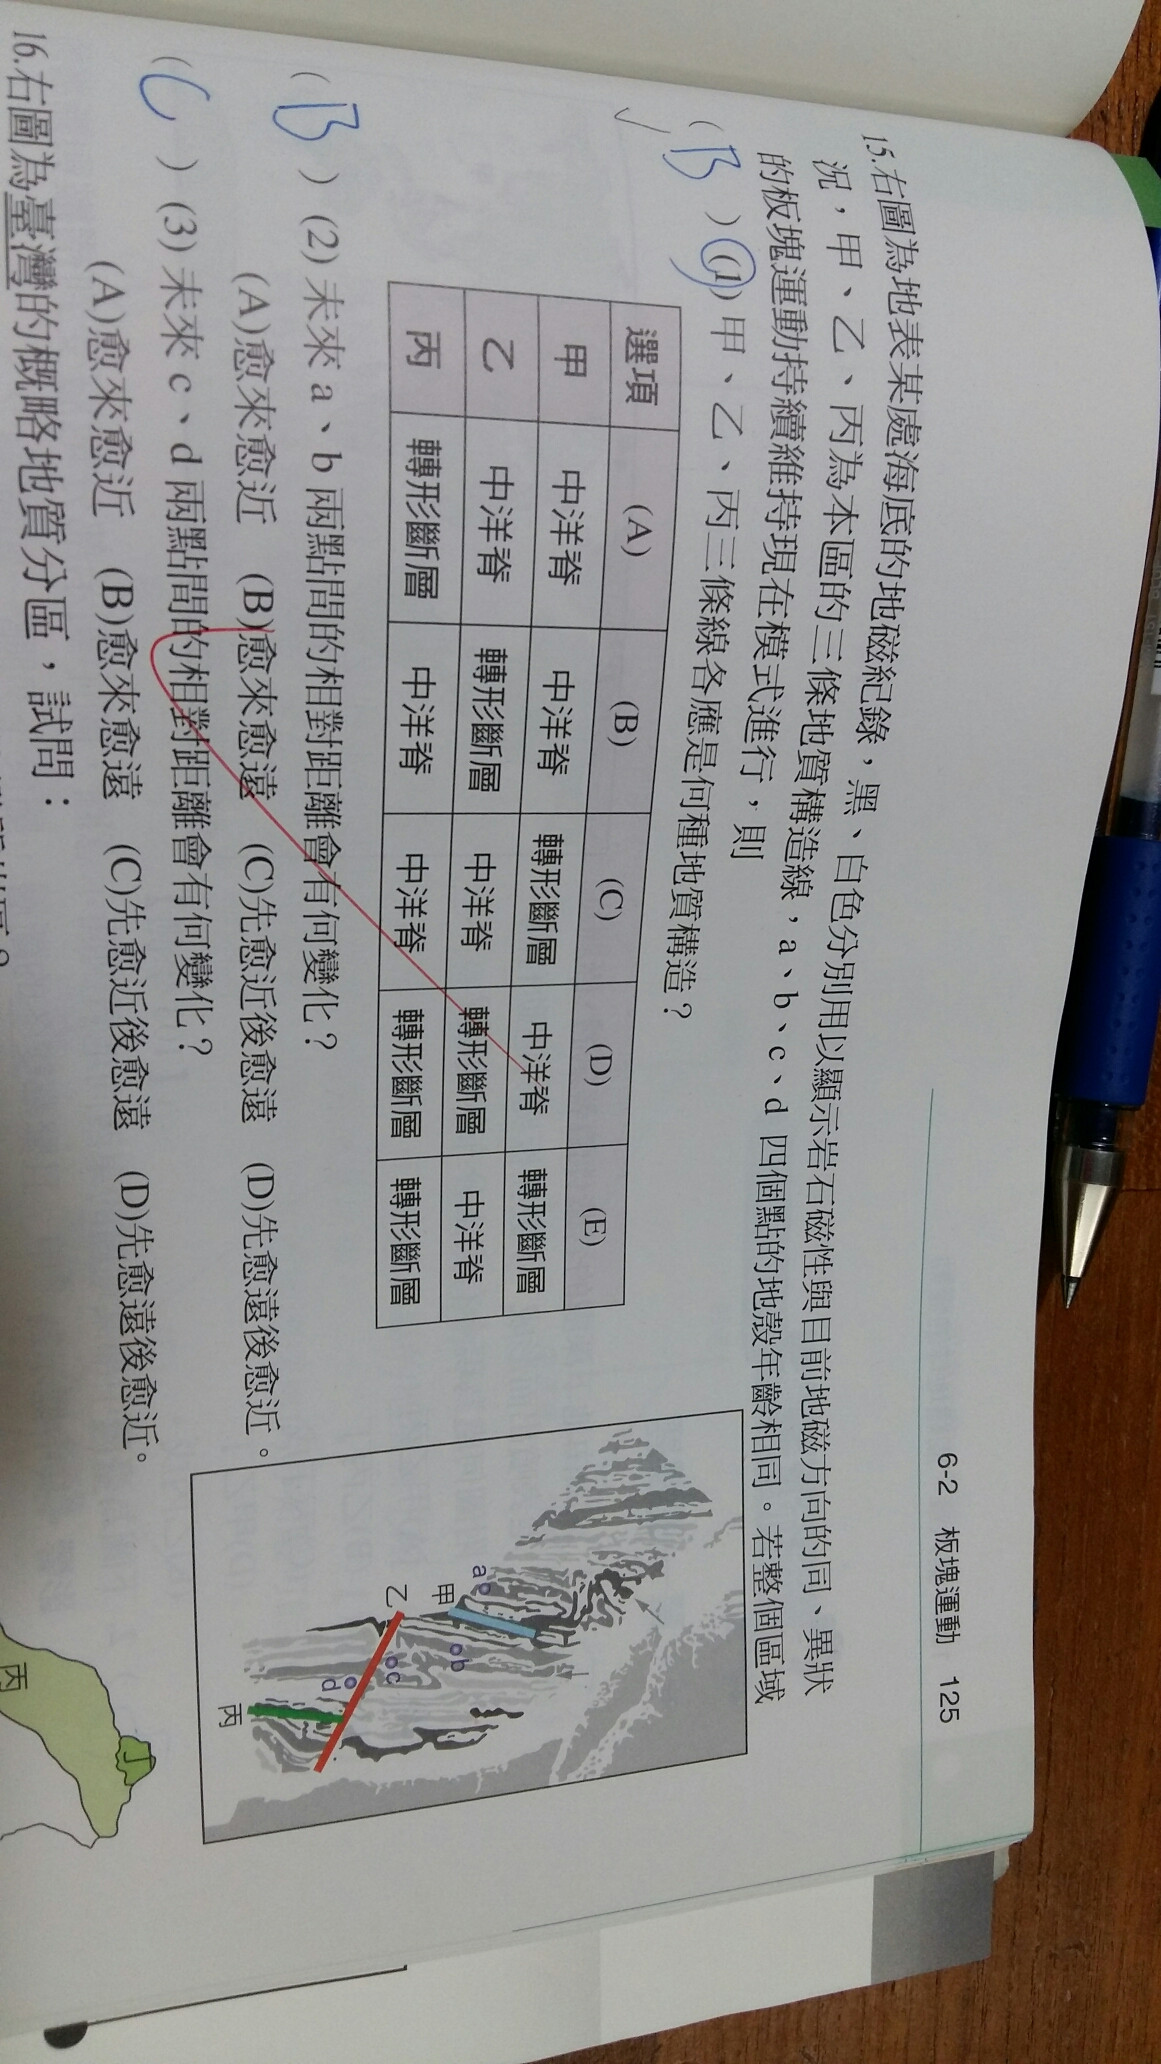 6-2 板塊運動 125
15.右圖為地表某處海底的地磁紀錄，黑、白色分別用以顯示岩石磁性與目前地磁方向的同、異狀
況，甲、乙、丙為本區的三條地質構造線，a、b、c、d 四個點的地殼年齡相同。若整個區域
的板塊運動持續維持現在模式進行，則
( B ) (1) 甲、乙、丙三條線各應是何種地質構造？
選項 (A) (B) (C) (D) (E)
甲 中洋脊 中洋脊 轉形斷層 中洋脊 轉形斷層
乙 中洋脊 轉形斷層 中洋脊 轉形斷層 中洋脊
丙 轉形斷層 中洋脊 中洋脊 轉形斷層 轉形斷層
( B ) (2) 未來 a、b 兩點間的相對距離會有何變化？
(A)愈來愈近 (B)愈來愈遠 (C)先愈近後愈遠 (D)先愈遠後愈近。
( C ) (3) 未來 c、d 兩點間的相對距離會有何變化？
(A)愈來愈近 (B)愈來愈遠 (C)先愈近後愈遠 (D)先愈遠後愈近。
a
甲
b
乙
c
d
丙
16.右圖為臺灣的概略地質分區，試問：
丁
丙